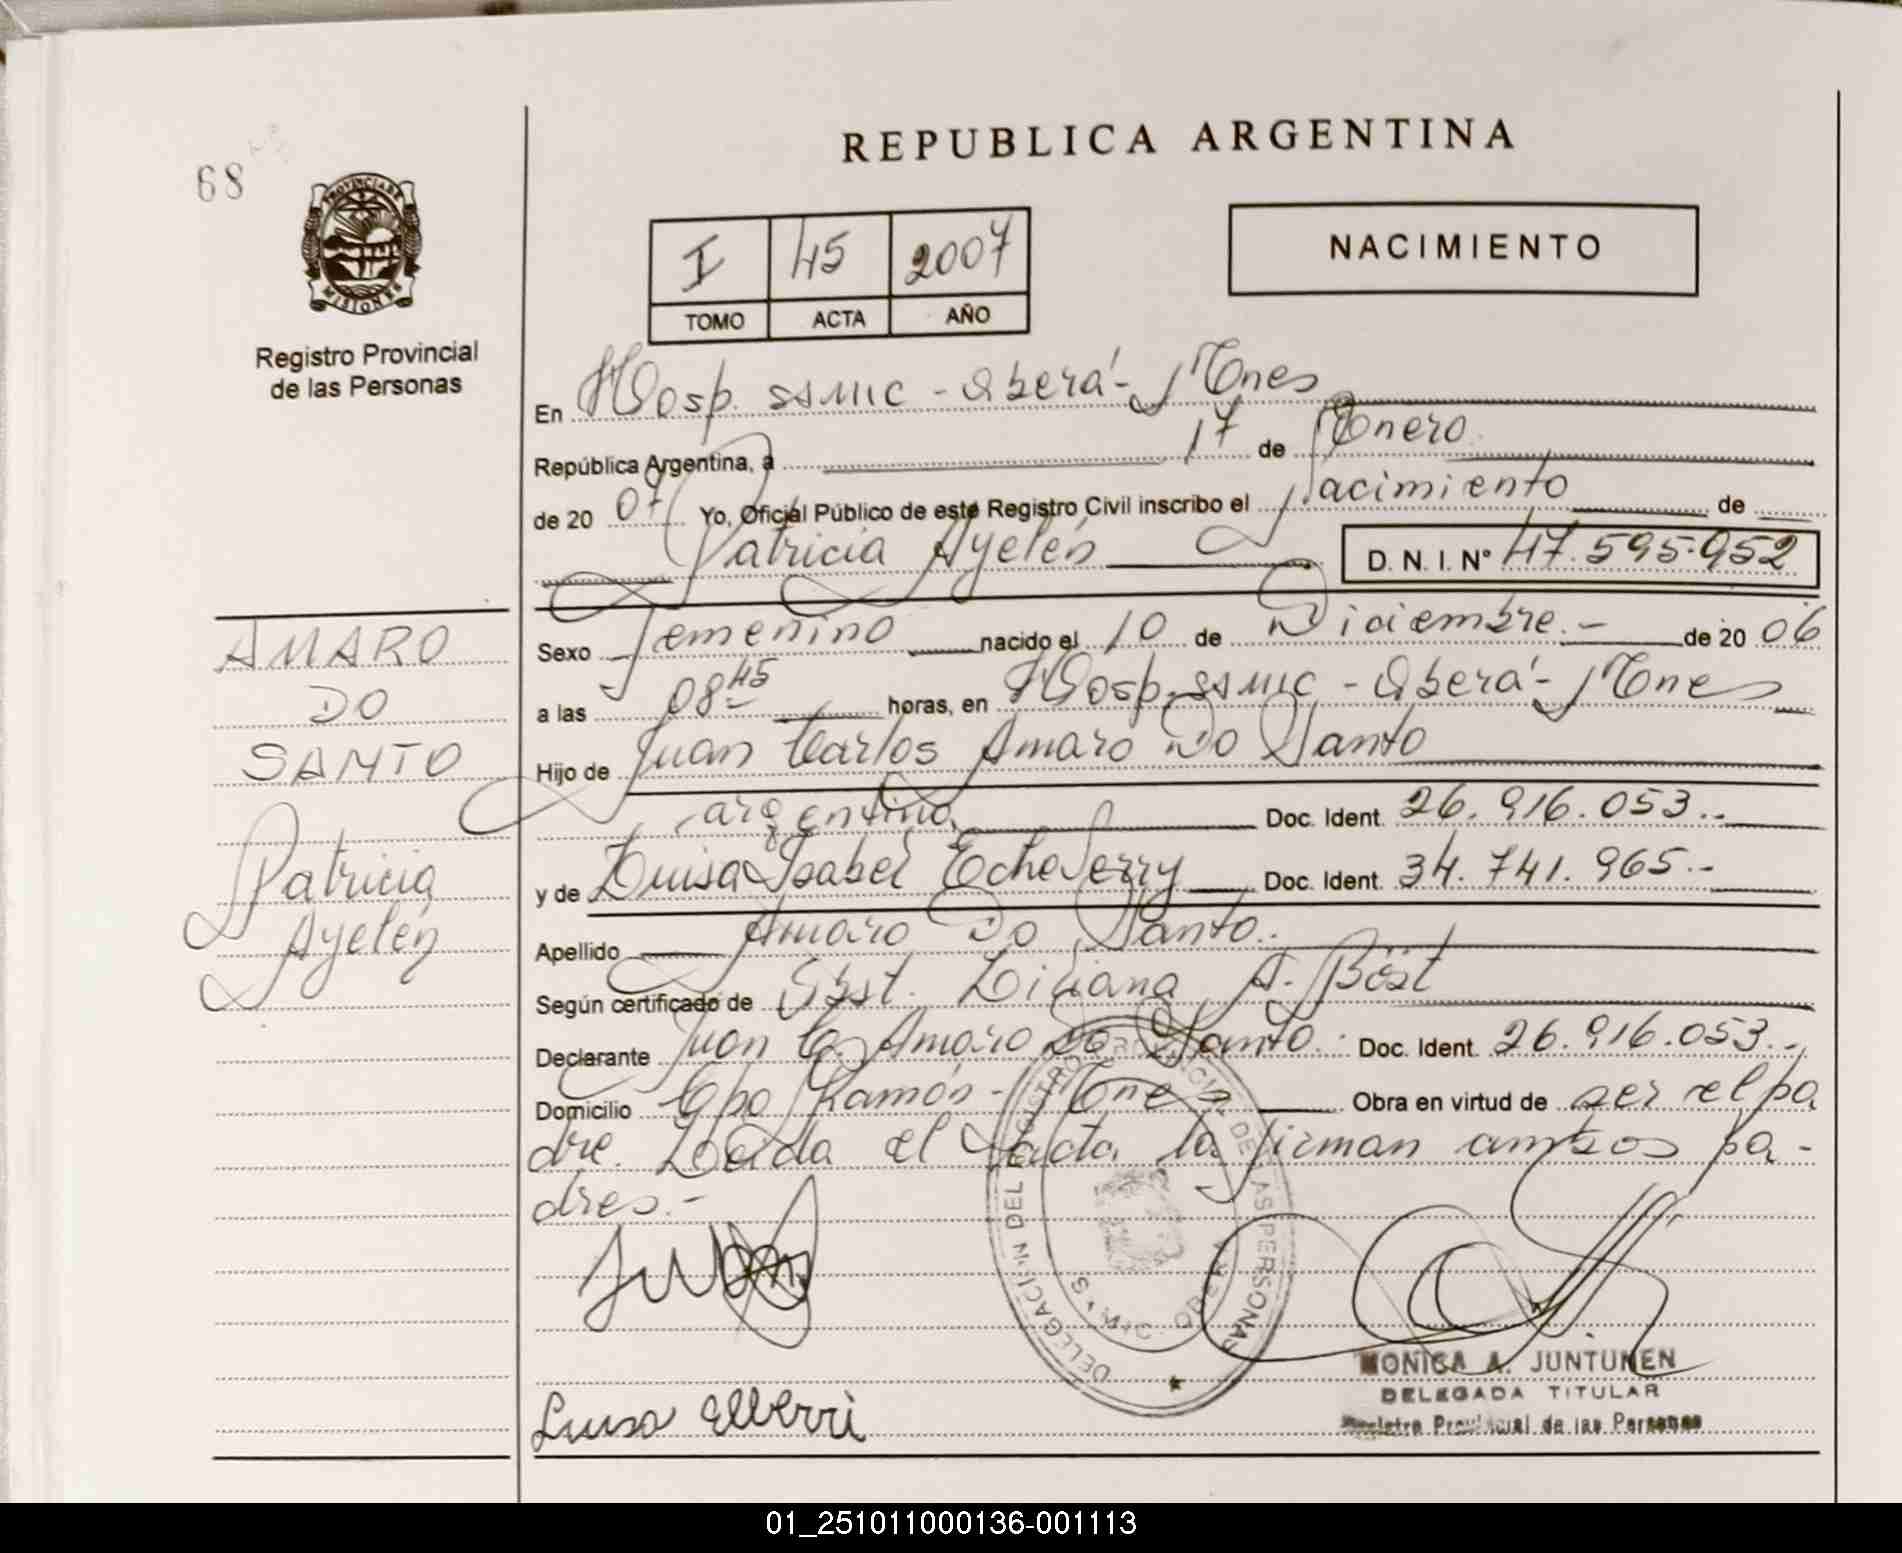 68
REPUBLICA ARGENTINA
PROVINCIA DE
MISIONES
Registro Provincial
de las Personas
I 45 2007
TOMO ACTA AÑO
NACIMIENTO
En Hosp. SAMIC - Oberá - Mnes
República Argentina, a 17 de Enero
de 20 07 Yo, Oficial Público de este Registro Civil inscribo el Nacimiento de
Patricia Ayelén D. N. I. Nº 47.595.952
AMARO
DO
SANTO
Patricia
Ayelén
Sexo Femenino nacido el 10 de Diciembre.- de 20 06
a las 08 45 horas, en Hosp. SAMIC - Oberá - Mnes
Hijo de Juan Carlos Amaro Do Santo
argentino Doc. Ident. 26.916.053.-
y de Luisa Isabel Echeverry Doc. Ident. 34.741.965.-
Apellido Amaro Do Santo.
Según certificado de Obst. Liliana A. Böst
Declarante Juan C. Amaro Do Santo. Doc. Ident. 26.916.053.-
Domicilio Cpo Ramón - Mnes Obra en virtud de ser el pa
dre. Leída el Acta la firman ambos pa-
dres.-
DELEGACION DEL REGISTRO PROVINCIAL DE LAS PERSONAS
S.A.M.I.C. OBERA
MONICA A. JUNTUNEN
DELEGADA TITULAR
Registro Provincial de las Personas
Luisa
01_251011000136-001113